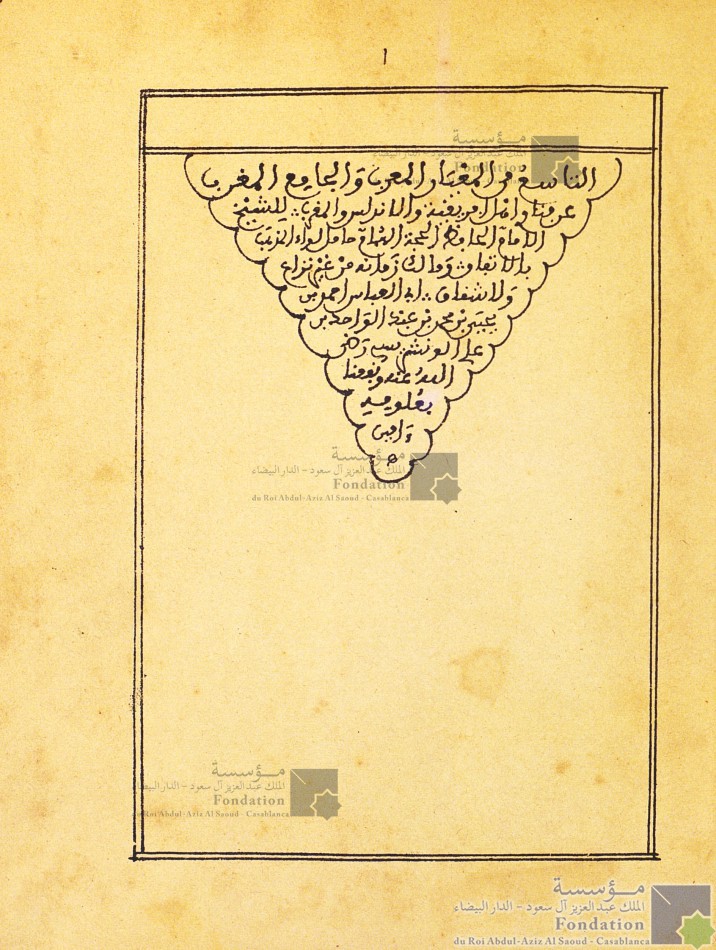 ١
التاسع من المعيار المعرب والجامع المغرب
عن فتاوى اهل افريقية والاندلس والمغرب للشيخ
الامام الحافظ الحجة الهمام حامل لواء المذهب
بالاتفاق ومالك زمانه من غير نزاع
ولا شقاق ابي العباس احمد بن
يحيى بن محمد بن عبد الواحد بن
علي الونشريسي رضي
الله عنه ونفعنا
بعلومه
ءامين
مؤسسة
الملك عبد العزيز آل سعود - الدار البيضاء
Fondation
du Roi Abdul-Aziz Al Saoud - Casablanca
مؤسسة
الملك عبد العزيز آل سعود - الدار البيضاء
Fondation
du Roi Abdul-Aziz Al Saoud - Casablanca
مؤسسة
الملك عبد العزيز آل سعود - الدار البيضاء
Fondation
du Roi Abdul-Aziz Al Saoud - Casablanca
مؤسسة
الملك عبد العزيز آل سعود - الدار البيضاء
Fondation
du Roi Abdul-Aziz Al Saoud - Casablanca